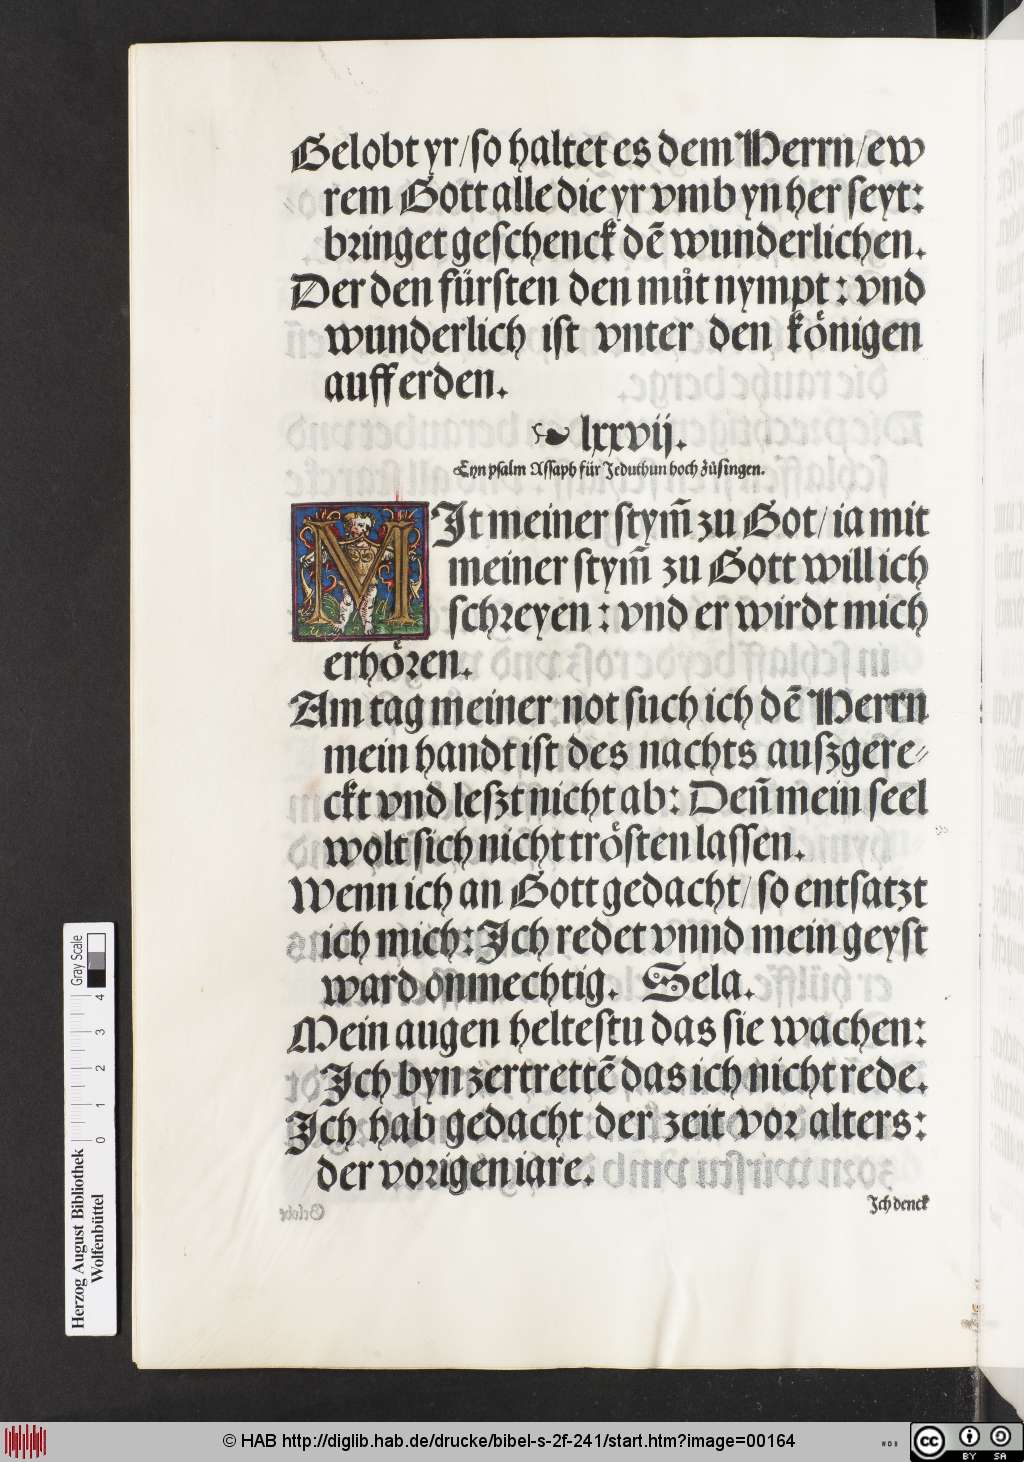 Gelobt yr/so haltet es dem Herrn/ew
rem Gott alle die yr vmb yn her seyt:
bringet geschenck dē wunderlichen.
Der den fürsten den můt nympt: vnd
wunderlich ist vnter den königen
auff erden.
lxxvij.
Eyn psalm Assaph für Jeduthun hoch zůsingen.
MIt meiner stym̄ zu Got/ia mit
meiner stym̄ zu Gott will ich
schreyen: vnd er wirdt mich
erhören.
Am tag meiner not such ich dē Herrn
mein handt ist des nachts auszgere⸗
ckt vnd leszt nicht ab: Den̄ mein seel
wolt sich nicht trösten lassen.
Wenn ich an Gott gedacht/so entsatzt
ich mich: Ich redet vnnd mein geyst
ward onmechtig. Sela.
Mein augen heltestu das sie wachen:
Ich byn zertrettē das ich nicht rede.
Ich hab gedacht der zeit vor alters:
der vorigen iare.
Ich denck
Herzog August Bibliothek
Wolfenbüttel
0 1 2 3 4
Gray Scale
© HAB http://diglib.hab.de/drucke/bibel-s-2f-241/start.htm?image=00164
WDB
cc BY SA